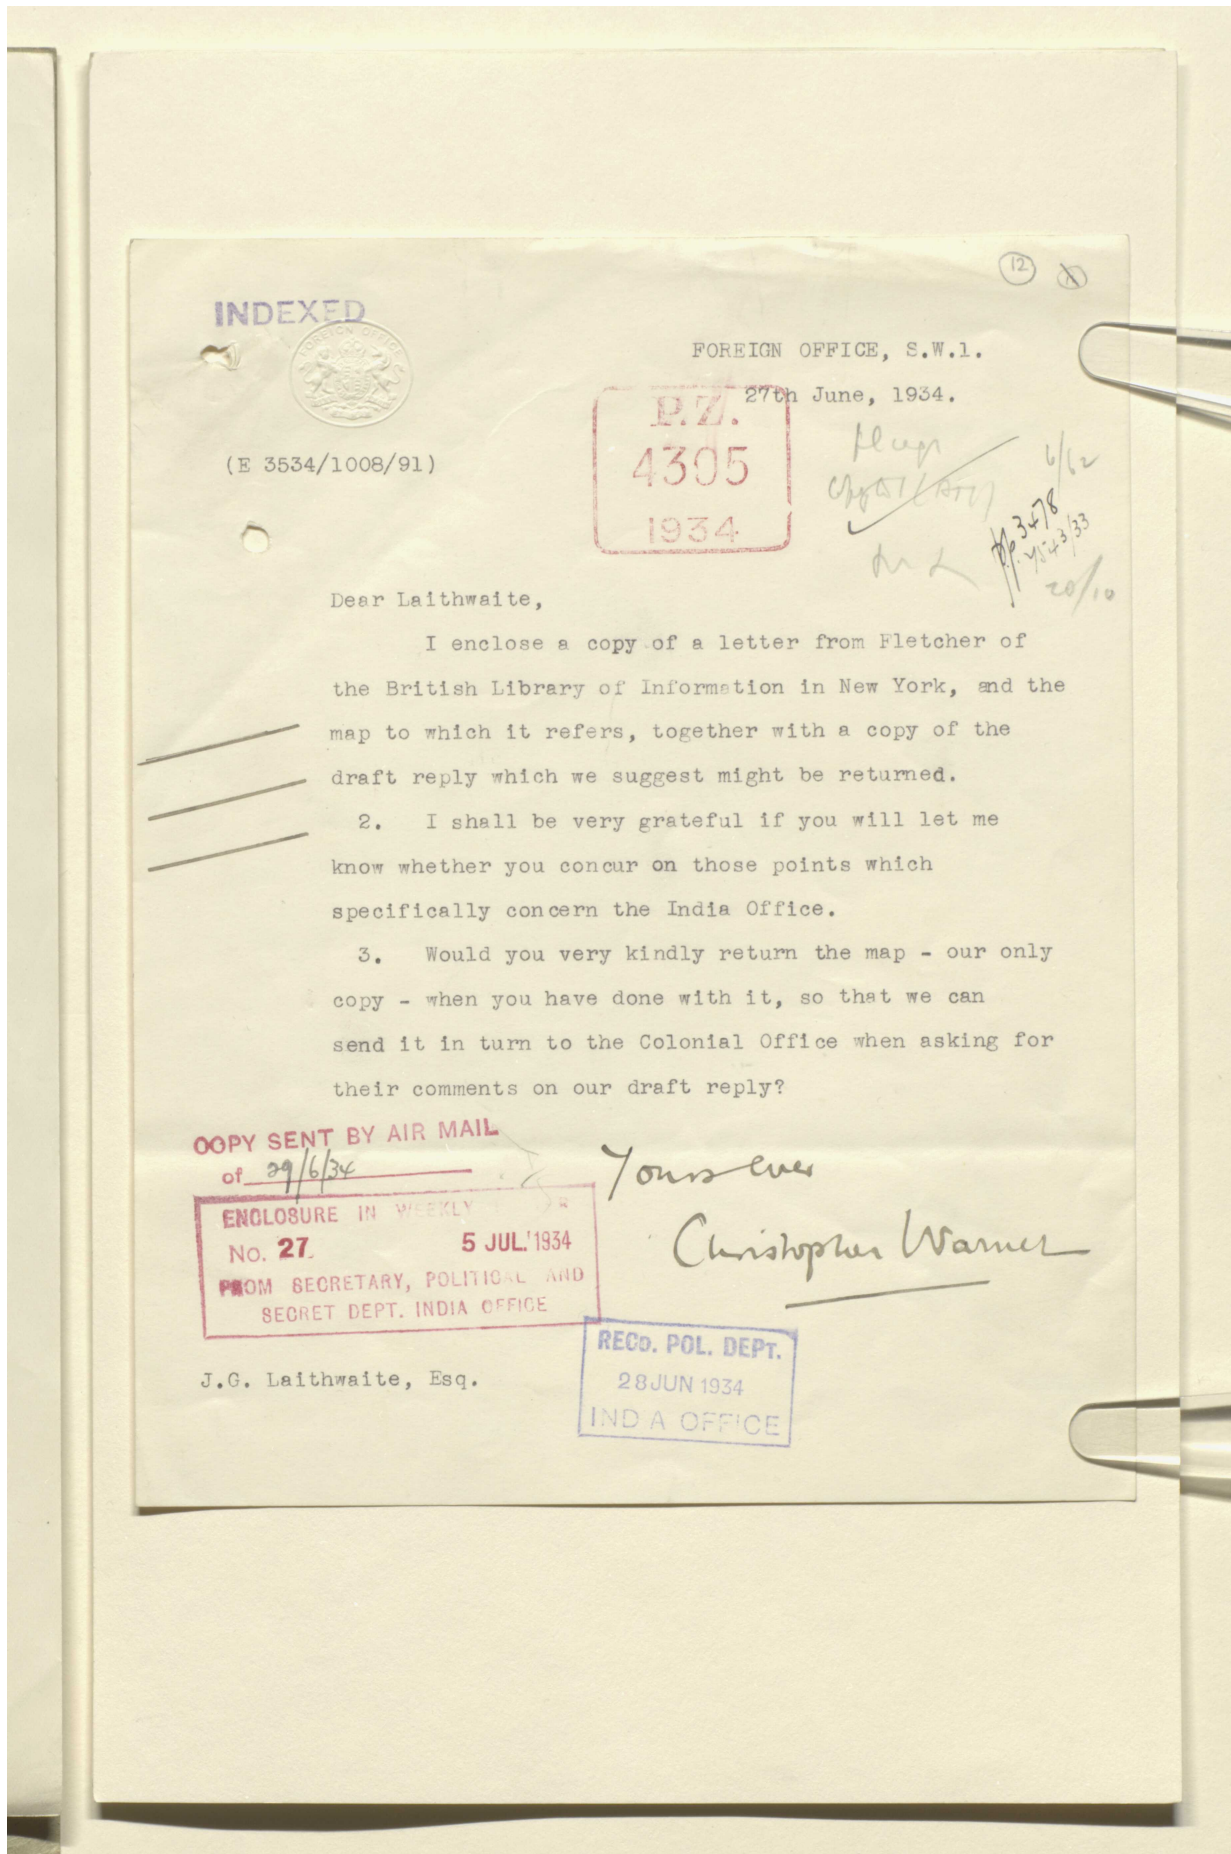 12
INDEXED
FOREIGN OFFICE
FOREIGN OFFICE, S.W.1.
27th June, 1934.
P.Z.
4305
1934
(E 3534/1008/91)
6/62
p.p. 3478
7543/33
20/10
Dear Laithwaite,
I enclose a copy of a letter from Fletcher of
the British Library of Information in New York, and the
map to which it refers, together with a copy of the
draft reply which we suggest might be returned.
2. I shall be very grateful if you will let me
know whether you concur on those points which
specifically concern the India Office.
3. Would you very kindly return the map - our only
copy - when you have done with it, so that we can
send it in turn to the Colonial Office when asking for
their comments on our draft reply?
COPY SENT BY AIR MAIL
of 29/6/34
Yours ever
Christopher Warner
ENCLOSURE IN WEEKLY
No. 27. 5 JUL. 1934
FROM SECRETARY, POLITICAL AND
SECRET DEPT. INDIA OFFICE
RECD. POL. DEPT.
28 JUN 1934
INDIA OFFICE
J.G. Laithwaite, Esq.